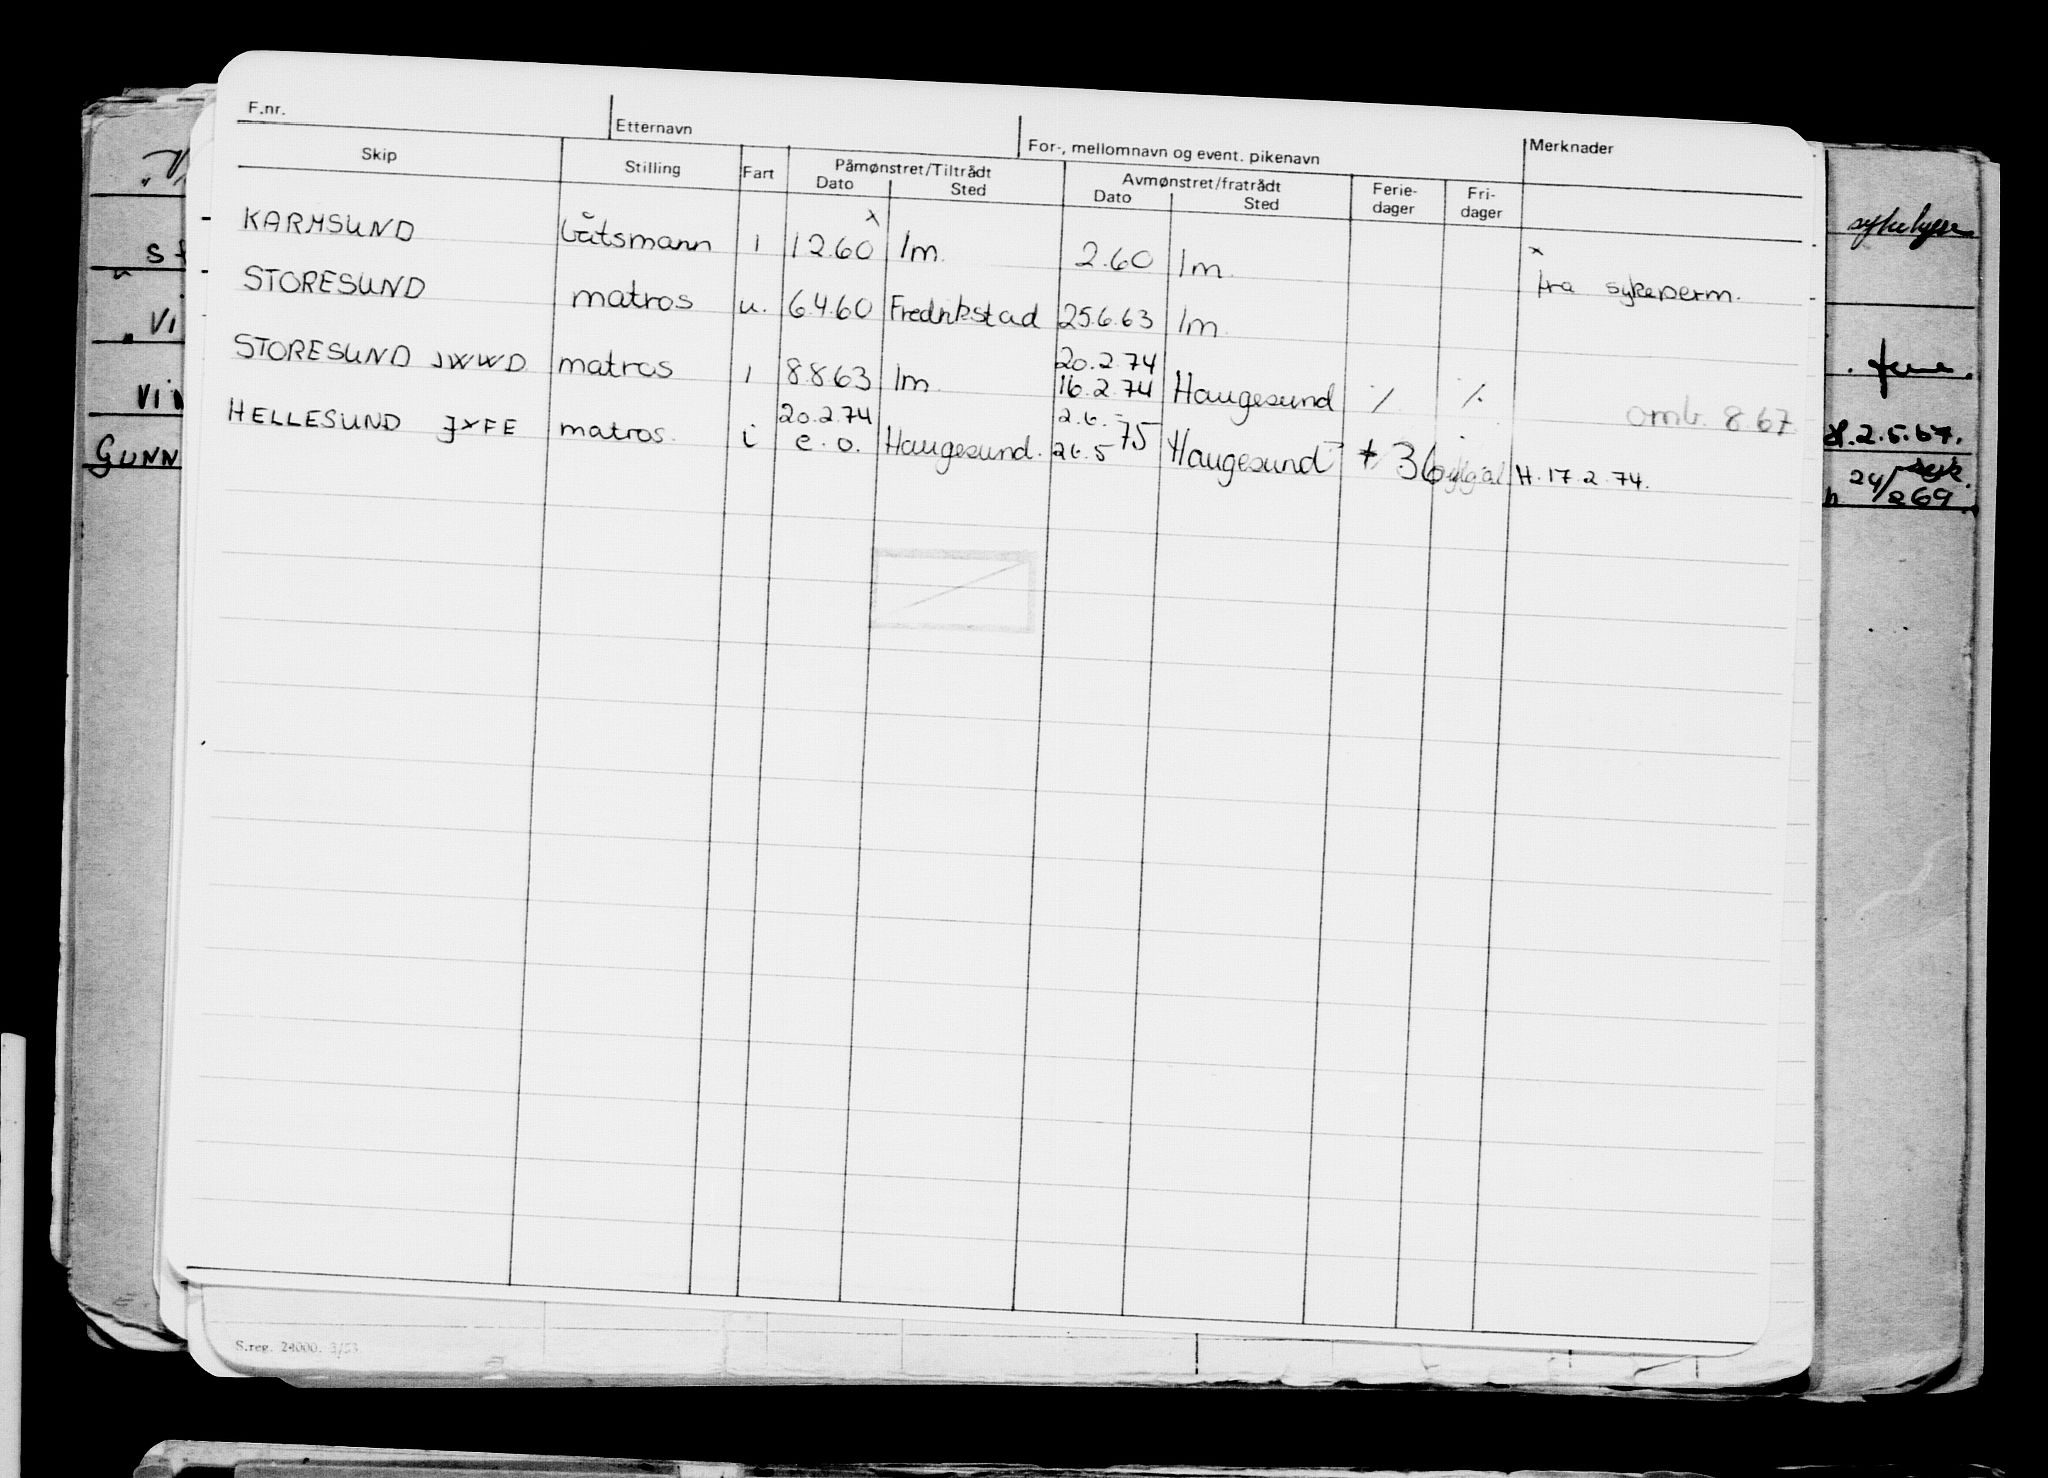 F.nr. Etternavn For-, mellomnavn og event. pikenavn Merknader
Skip Stilling Fart Påmønstret/Tiltrådt Avmønstret/fratrådt Ferie- Fri-
Dato Sted Dato Sted dager dager
x
KARMSUND båtsmann i 1 2.60 Im. 2.60 Im. x
fra sykeperm.
STORESUND matros u. 6.4.60 Fredrikstad 25.6.63 Im.
20.2.74
STORESUND JWWD matros i 8.8.63 Im. 16.2.74 Haugesund omb. 8.67
20.2.74 2.6.-
HELLESUND JXFE matros. i e.o. Haugesund. 26.5 75 Haugesund 36 H. 17.2.74.
VI
VI
GUNN
2.5.67.
24/2 69
S.reg. 24000. 3/53